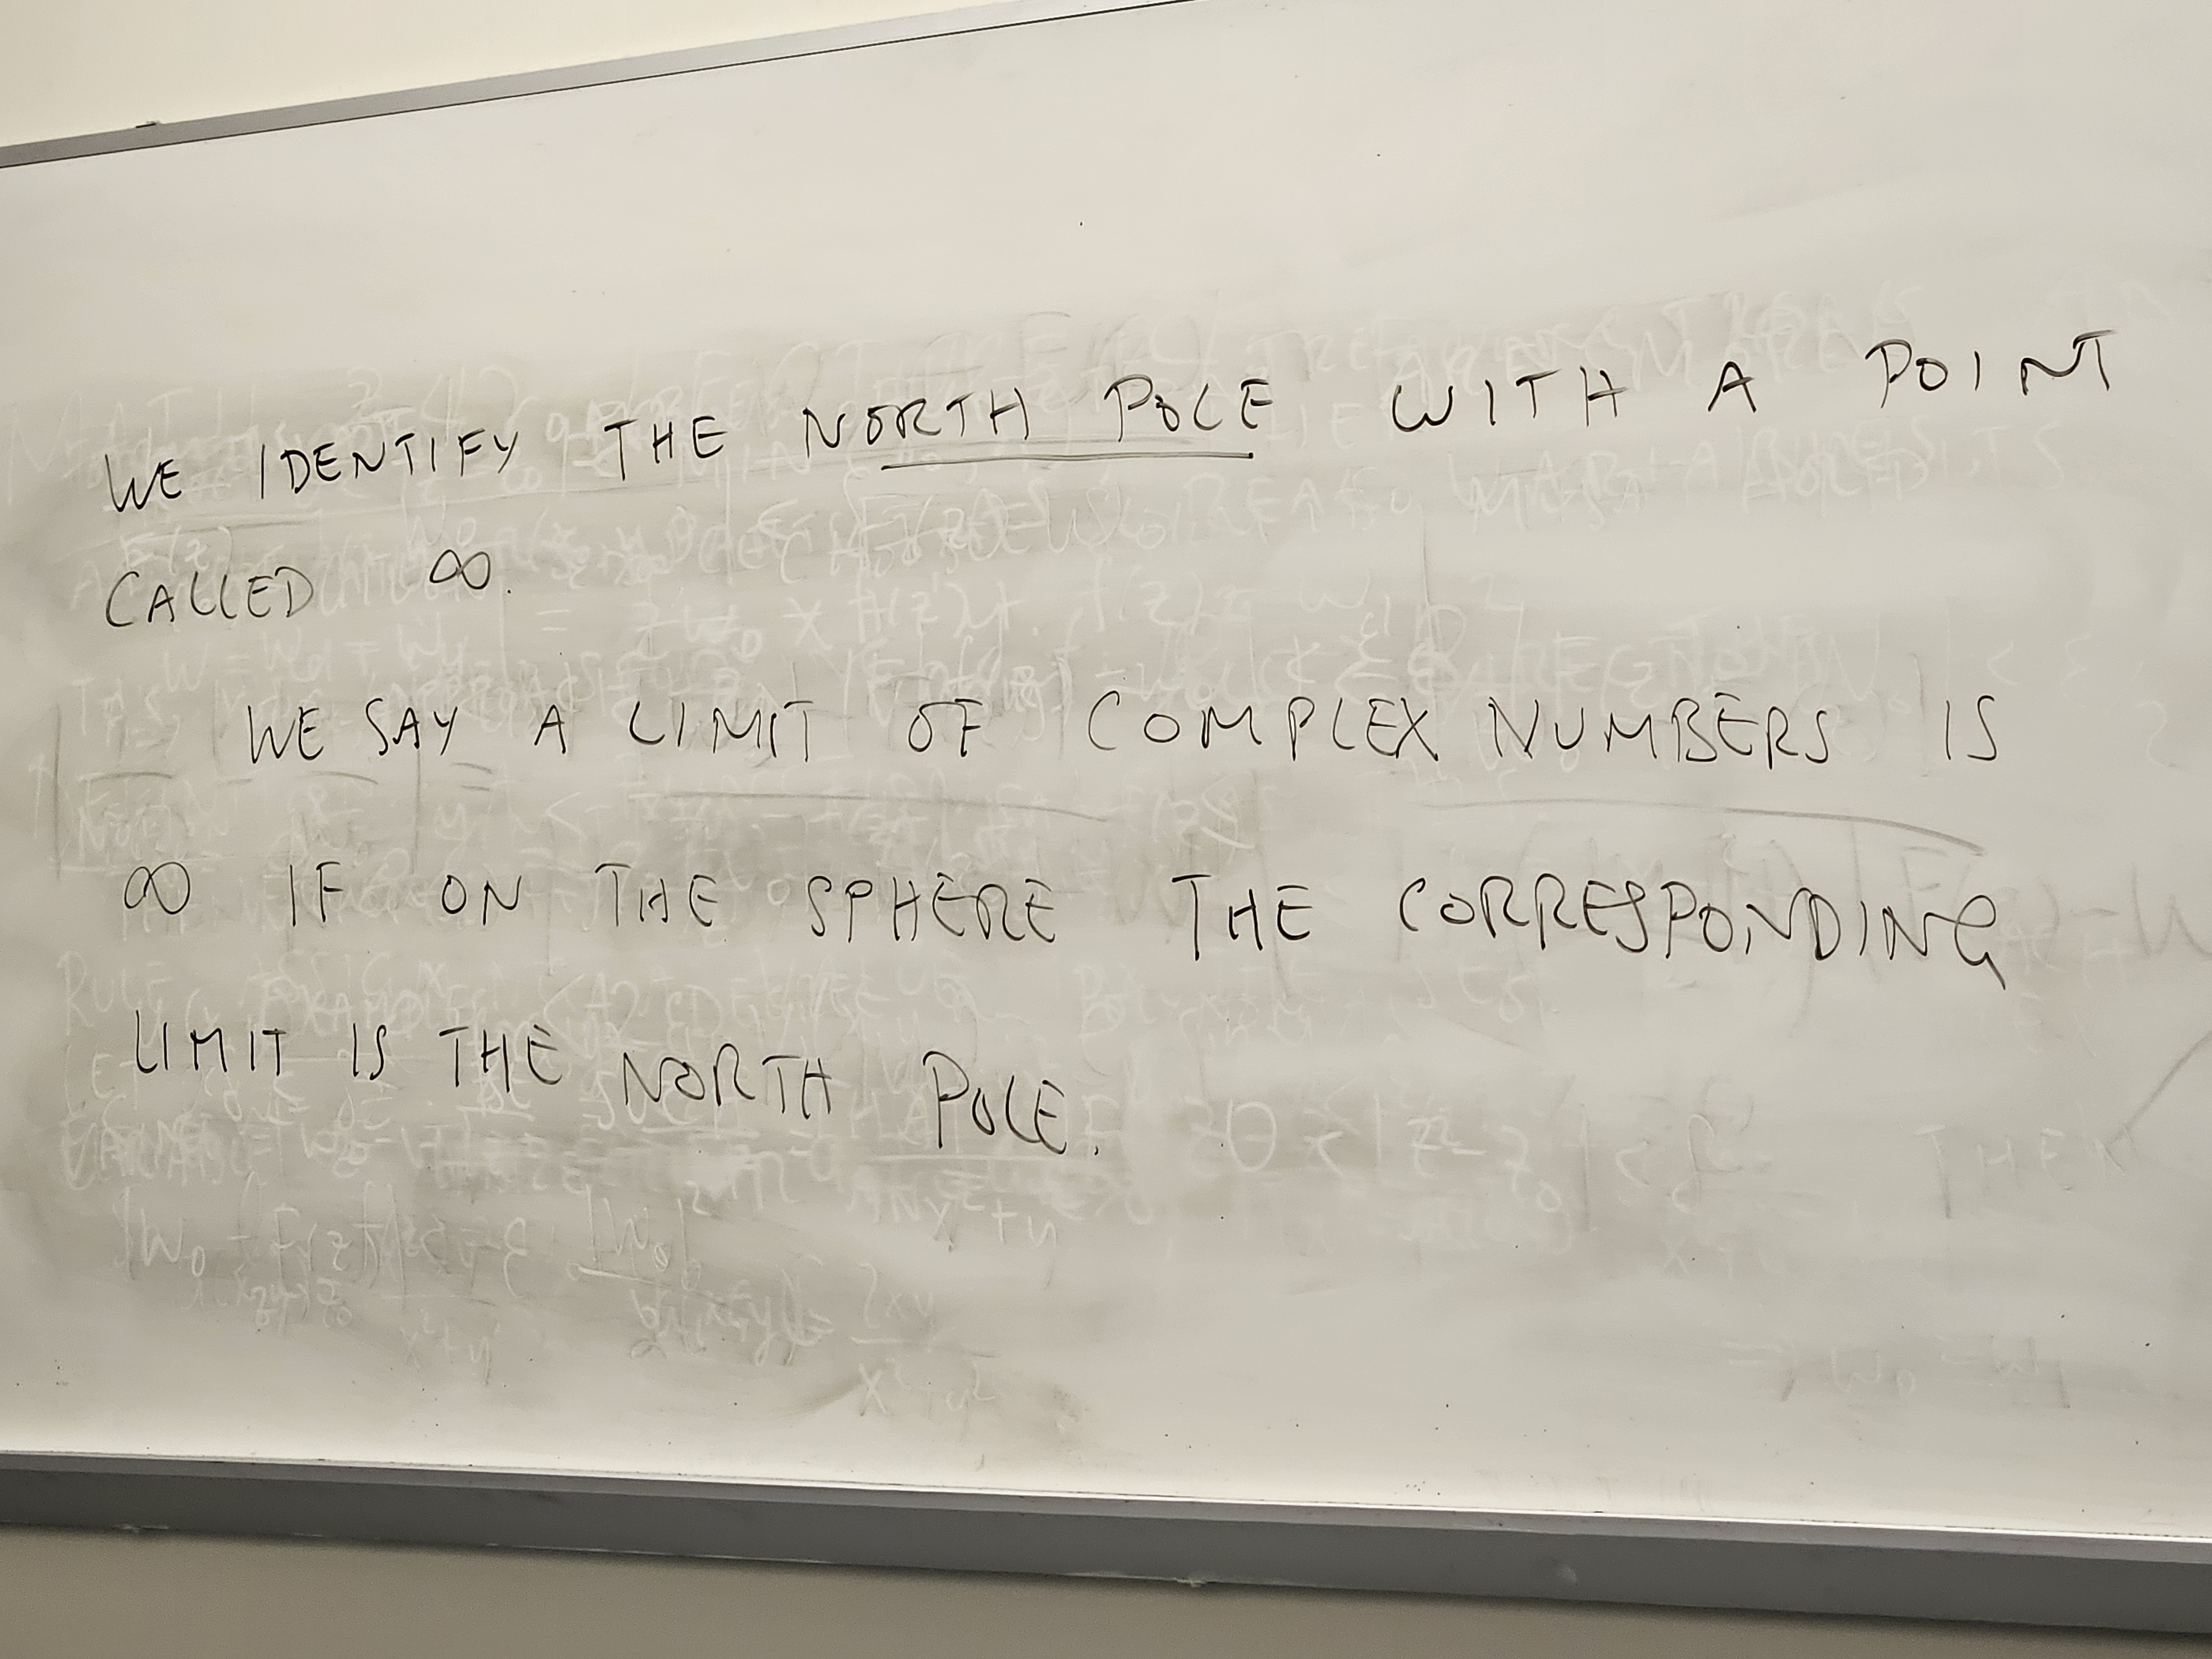 WE IDENTIFY THE NORTH POLE WITH A POINT
CALLED ∞.
WE SAY A LIMIT OF COMPLEX NUMBERS IS
∞ IF ON THE SPHERE THE CORRESPONDING
LIMIT IS THE NORTH POLE.